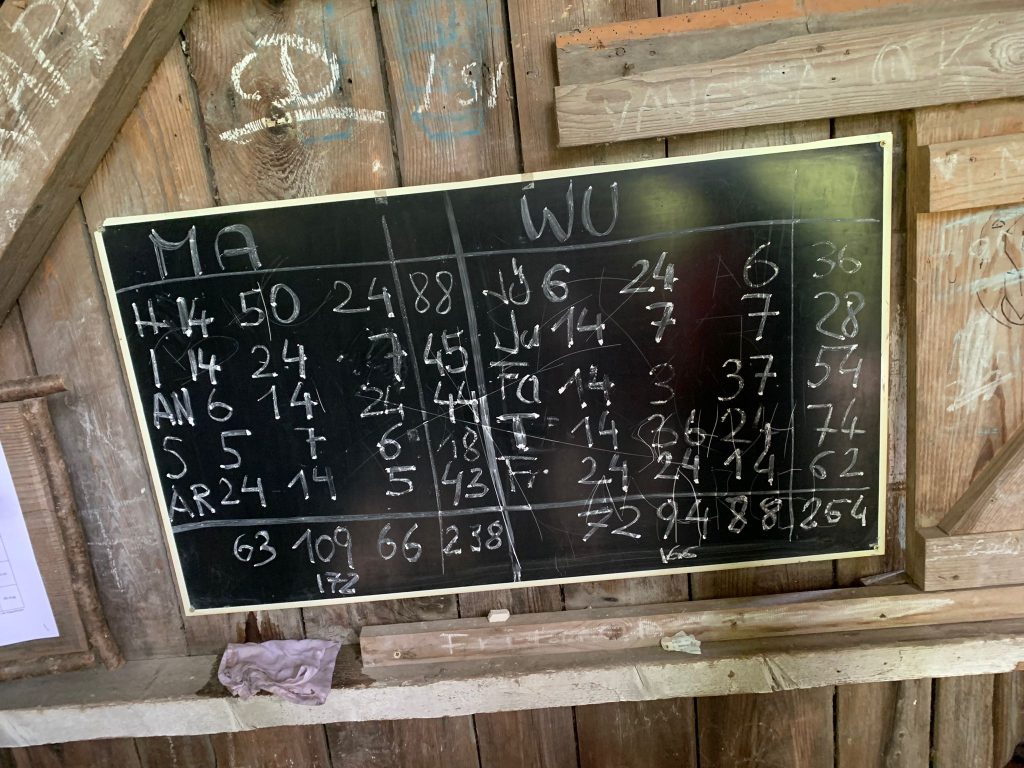 MA WU
H 14 50 24 88 Jü 6 24 6 36
I 14 24 7 45 Ju 14 7 7 28
AN 6 14 24 44 Fa 14 3 37 54
S 5 7 6 18 T 14 36 24 74
AR 24 14 5 43 Fr 24 24 14 62
63 109 66 238 72 94 88 254
172 166